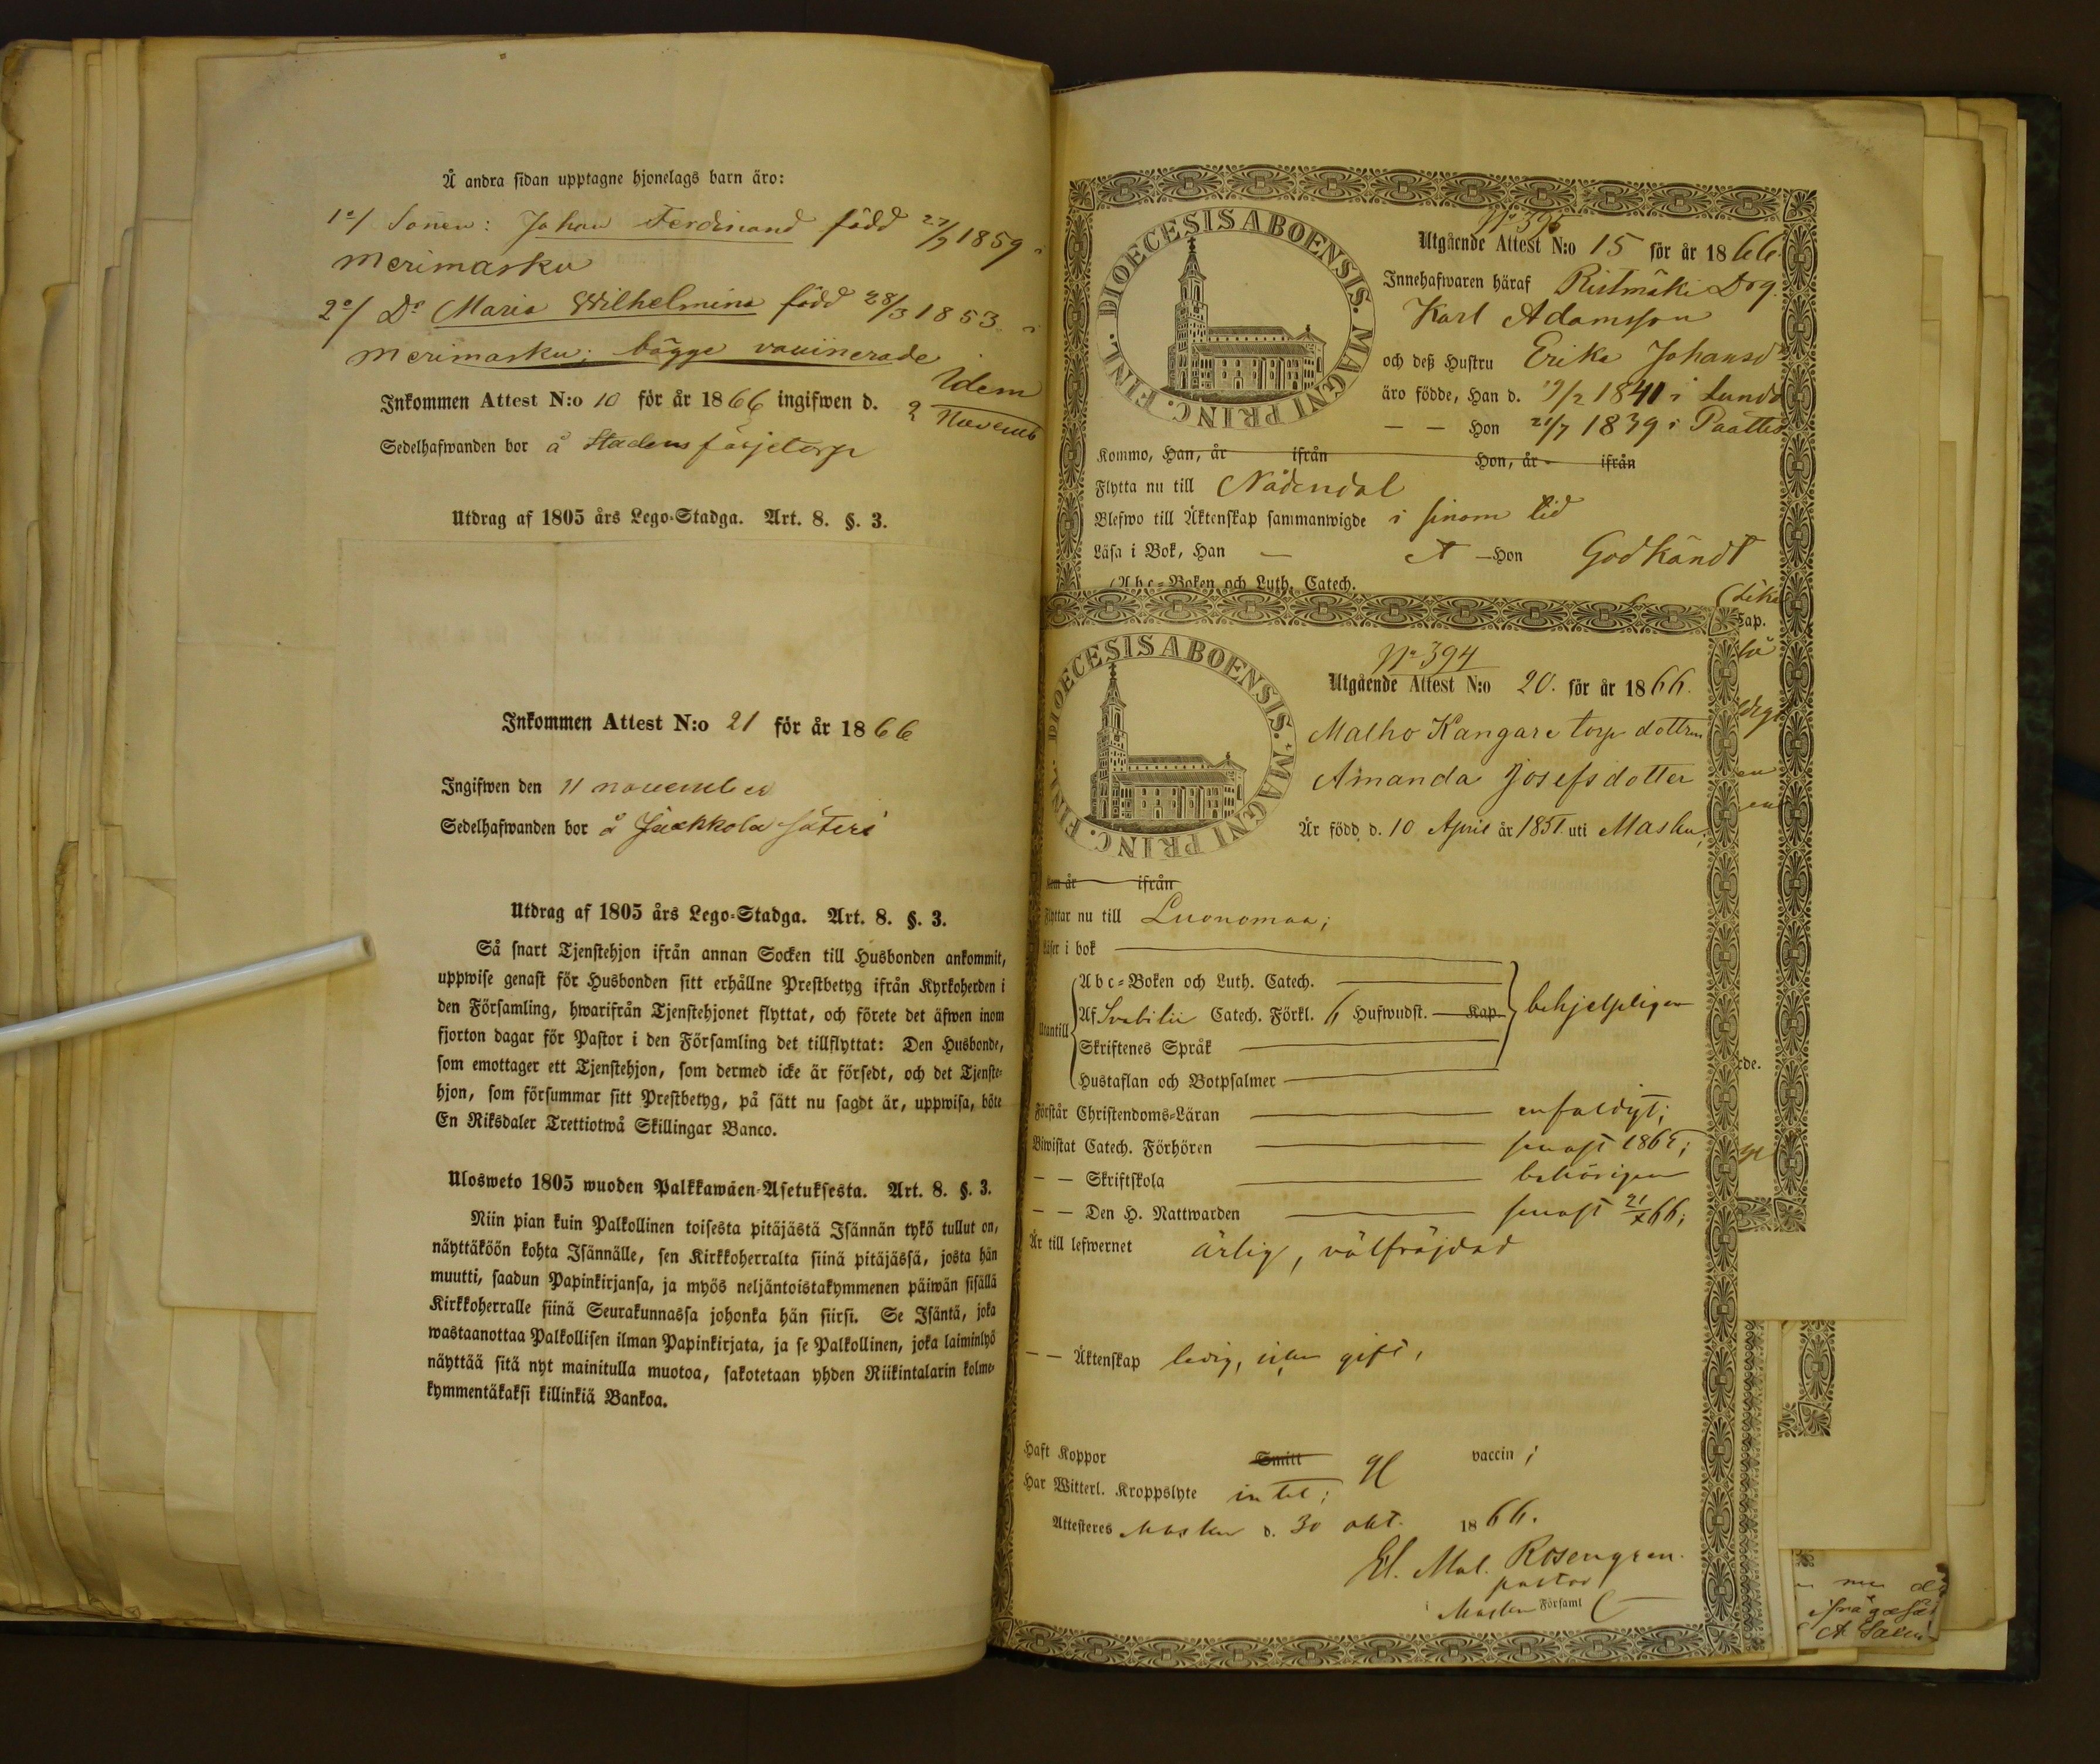 Å andra sidan upptagne hjonelags barn äro:
1o/ Sonen: Johan Ferdinand född 27/9 1859 i
Merimasku
2o/ Do Maria Wilhelmina född 28/3 1853 i
Merimasku; bägge vaccinerade
Inkommen Attest N:o 10 för år 1866 ingifwen d. 2 Novemb
Idem
Sedelhafwanden bor å Stadens färjetorp
Utdrag af 1805 års Lego-Stadga. Art. 8. §. 3.
Inkommen Attest N:o 21 för år 1866
Ingifwen den 11 november
Sedelhafwanden bor å säteri
Utdrag af 1805 års Lego-Stadga. Art. 8. §. 3.
Så snart Tjenstehjon ifrån annan Socken till Husbonden ankommit,
uppwise genast för Husbonden sitt erhållne Prestbetyg ifrån Kyrkoherden i
den Församling, hwarifrån Tjenstehjonet flyttat, och förete det äfwen inom
fjorton dagar för Pastor i den Församling det tillflyttat: Den Husbonde,
som emottager ett Tjenstehjon, som dermed icke är försedt, och det Tjenste-
hjon, som försummar sitt Prestbetyg, på sätt nu sagdt är, uppwisa, böte
En Riksdaler Trettiotwå Skillingar Banco.
Ulosweto 1805 wuoden Palkkawäen-Asetuksesta. Art. 8. §. 3.
Niin pian kuin Palkollinen toisesta pitäjästä Isännän tykö tullut on,
näyttäköön kohta Isännälle, sen Kirkkoherralta siinä pitäjässä, josta hän
muutti, saadun Papinkirjansa, ja myös neljäntoistakymmenen päiwän sisällä
Kirkkoherralle siinä Seurakunnassa johonka hän siirsi. Se Isäntä, joka
wastaanottaa Palkollisen ilman Papinkirjata, ja se Palkollinen, joka laiminlyö
näyttää sitä nyt mainitulla muotoa, sakotetaan yhden Riikintalarin kolme-
kymmentäkaksi killinkiä Bankoa.
DIOECESIS ABOENSIS. MAGNI PRINC. FINL.
No 395
Utgående Attest N:o 15 för år 1866.
Innehafwaren häraf Ristmäki Drg.
Karl Adamsson
och deß Hustru Erika Johansdr
äro födde, Han d. 19/2 1841 i Lundo
— — Hon 21/7 1839 i Paattis
Kommo, Han, år ifrån Hon, år ifrån
Flytta nu till Nådendal
Blefwo till Äktenskap sammanwigde i sinom tid
Läsa i Bok, Han — Hon Godkändt
Abc-Boken och Luth. Catech.
kap.
DIOECESIS ABOENSIS. MAGNI PRINC. FINL.
No 394
Utgående Attest N:o 20. för år 1866.
Malho Kangare torp dottren
Amanda Josefsdotter
Är född d. 10 April år 1851 uti Masku;
Kom år ifrån
Flyttar nu till Luonomaa;
Läser i bok
Abc-Boken och Luth. Catech.
Utantill Af Svebilii Catech. Förkl. 6 Hufwudst. Kap. behjelpligen
Skriftenes Språk
Hustaflan och Botpsalmer
Förstår Christendoms-Läran enfaldigt;
Biwistat Catech. Förhören senast 1865;
— — Skriftskola behörigen
— — Den H. Nattwarden senast 21/X 66;
Är till lefwernet ärlig, välfräjdad
— — Äktenskap ledig, icke gift,
Haft Koppor Smitt vaccin;
Har Witterl. Kroppslyte intet;
Attesteres Masku d. 30 okt. 1866.
Rosengren.
pastor
i Masku Församl